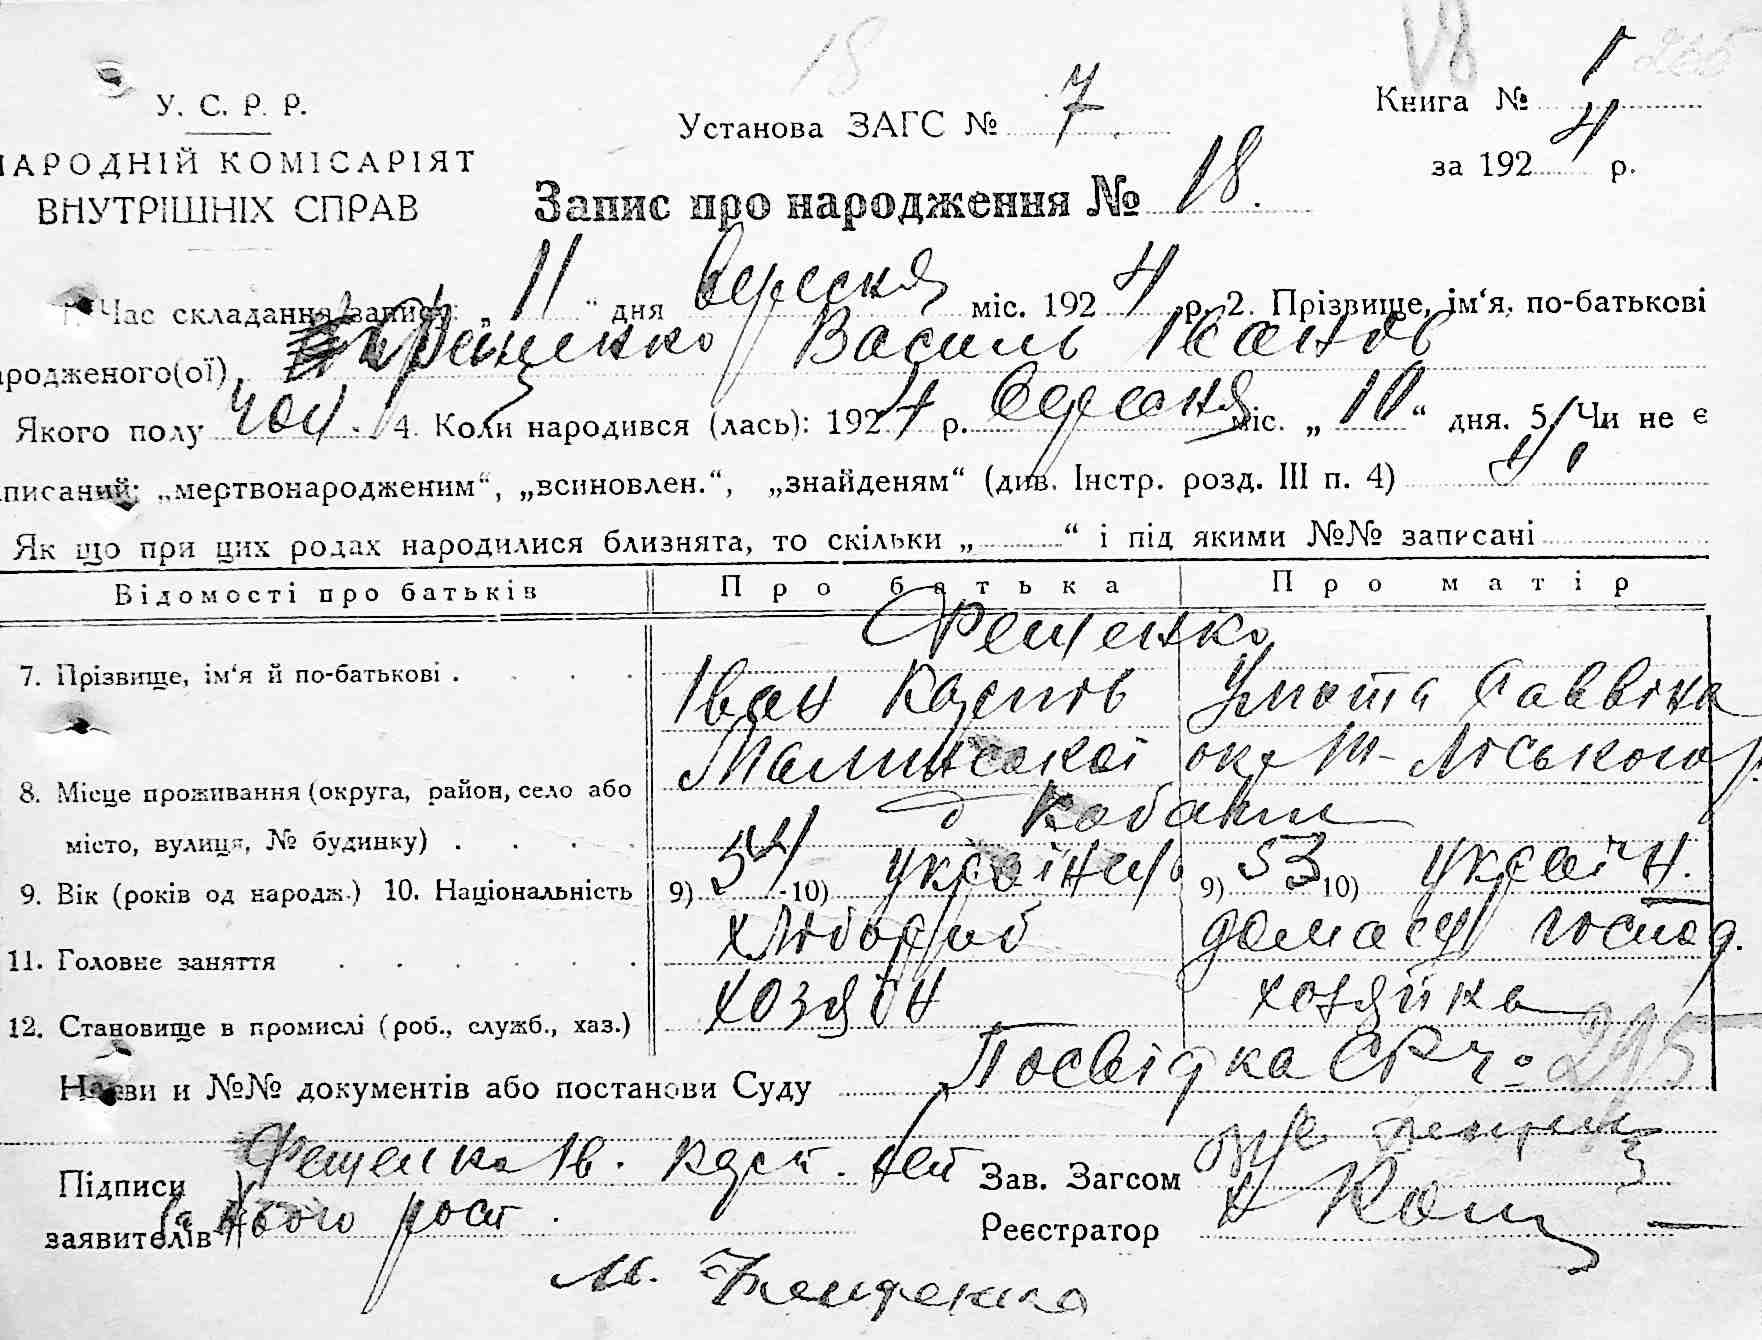 18
У. С. Р. Р.
НАРОДНІЙ КОМІСАРІЯТ
ВНУТРІШНІХ СПРАВ
Установа ЗАГС № 7
Книга № 1
за 1924 р.
Запис про народження № 18.
1. Час складання запису: „11“ дня Вересня міс. 1924 р. 2. Прізвище, ім‘я, по-батькові
народженого(ої) Фещенко Василь Іванов
Якого полу чол. 4. Коли народився (лась): 1924 р. Вересня міс. „10“ дня. 5. Чи не є
записаний: „мертвонародженим“, „всиновлен.“, „знайденям“ (див. Інстр. розд. III п. 4)
Як що при цих родах народилися близнята, то скільки „ “ і під якими №№ записані
Відомості про батьків Про батька Про матір
Фещенко
7. Прізвище, ім‘я й по-батькові . Іван Кузьмів Саввівна
8. Місце проживання (округа, район, село або
місто, вулиця, № будинку) .
9. Вік (років од народж.) 10. Національність 9) 54 10) українець 9) 53 10) україн.
11. Головне заняття хлібороб домаш господ.
12. Становище в промислі (роб., служб., хаз.) хозяін хозяйка
Назви и №№ документів або постанови Суду Посвідка СР ч: 295
Підписи Фещенко Ів.
заявителів За нього рост.
Зав. Загсом
Реєстратор
М.